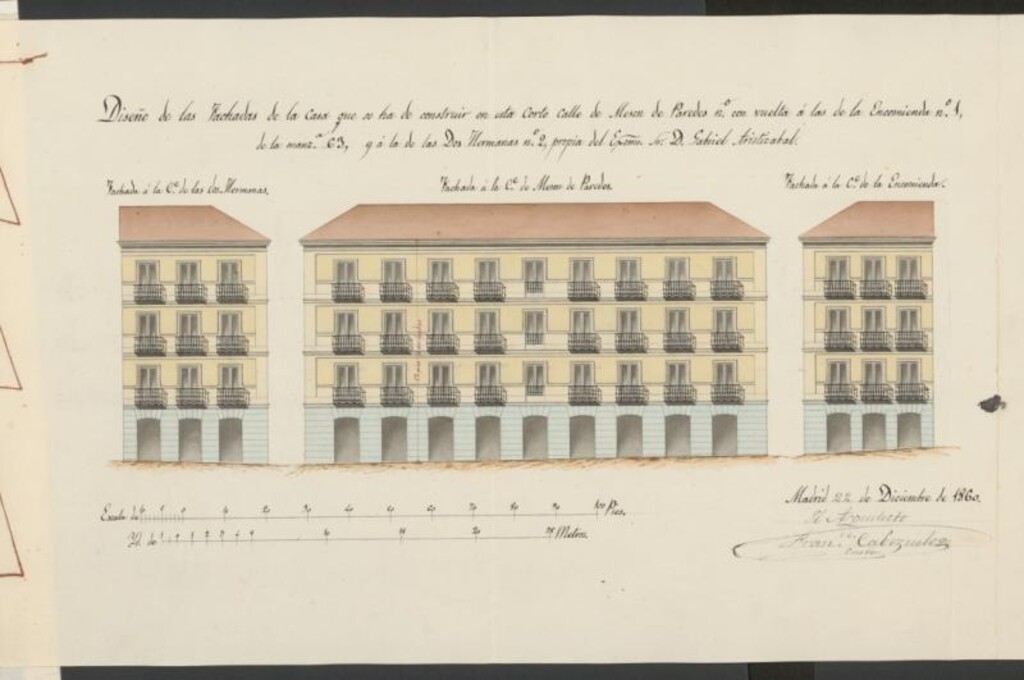 Diseño de las Fachadas de la Casa que se ha de construir en esta Corte calle de Meson de Paredes n.º con vuelta á las de la Encomienda n.º 1,
de la manz.ª 63, y á la de las Dos Hermanas n.º 2, propia del Excmo. Sr. D. Gabriel Aristizabal.
Fachada á la C.ª de las Dos Hermanas.
Fachada á la C.ª de Meson de Paredes.
Fachada á la C.ª de la Encomienda.
Escala de 10 20 30 40 50 60 70 80 90 100 Pies.
Id. de Metros.
Madrid 22 de Diciembre de 1860.
El Arquitecto
Fran.co Cabezuelo